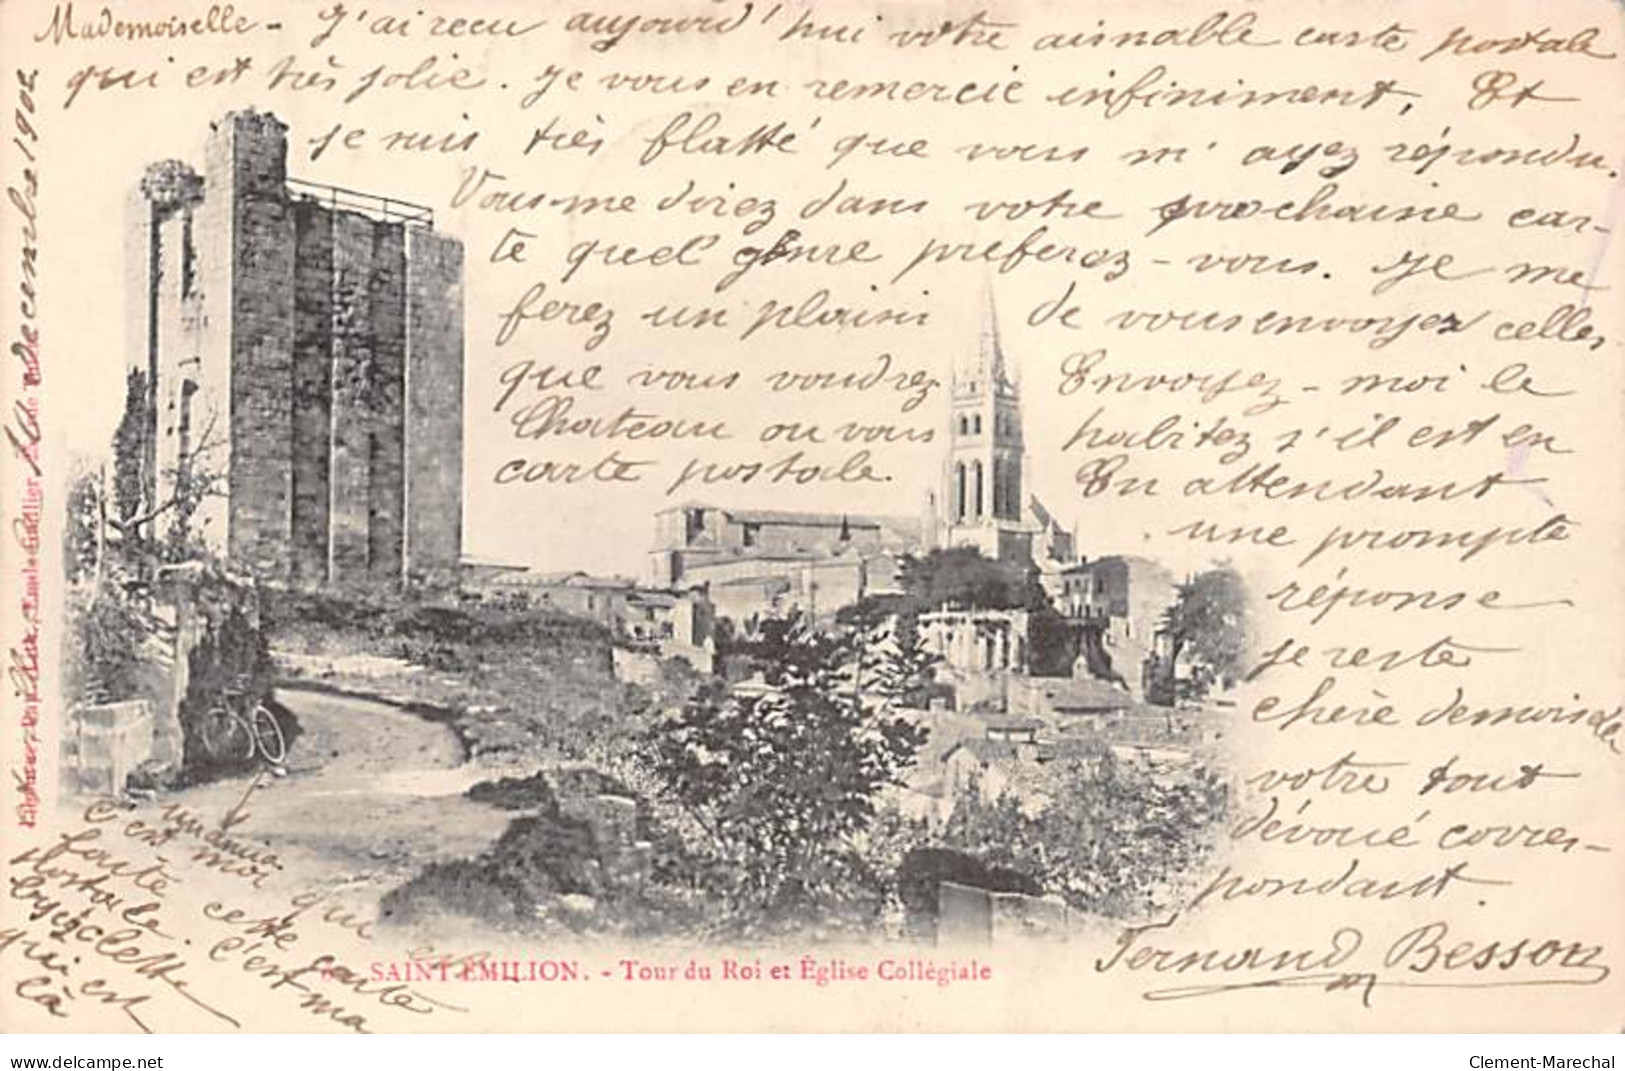 Mademoiselle - J'ai recu aujourd'hui votre aismable carte postale
qui est très jolie. Je vous en remercie infiniment. Et
je suis très flatté que vous m'ayez répondu.
Vous me direz dans votre prochaine car-
te quel genre preferez-vous. Je me
ferez un plaisir de vous envoyez celles
que vous voudrez. Envoyez-moi le
Chateau ou vous habitez s'il est en
carte postale. En attendant
une prompte
réponse
je reste
chère demoiselle
votre tout
dévoué corres-
pondant.
Fernand Besson
décembre 1902
un amie
c'est moi qui
faite cette carte
postale. c'est ma
bysiclette
qui est
là
SAINT-EMILION. - Tour du Roi et Église Collègiale
www.delcampe.net
Clement-Marechal